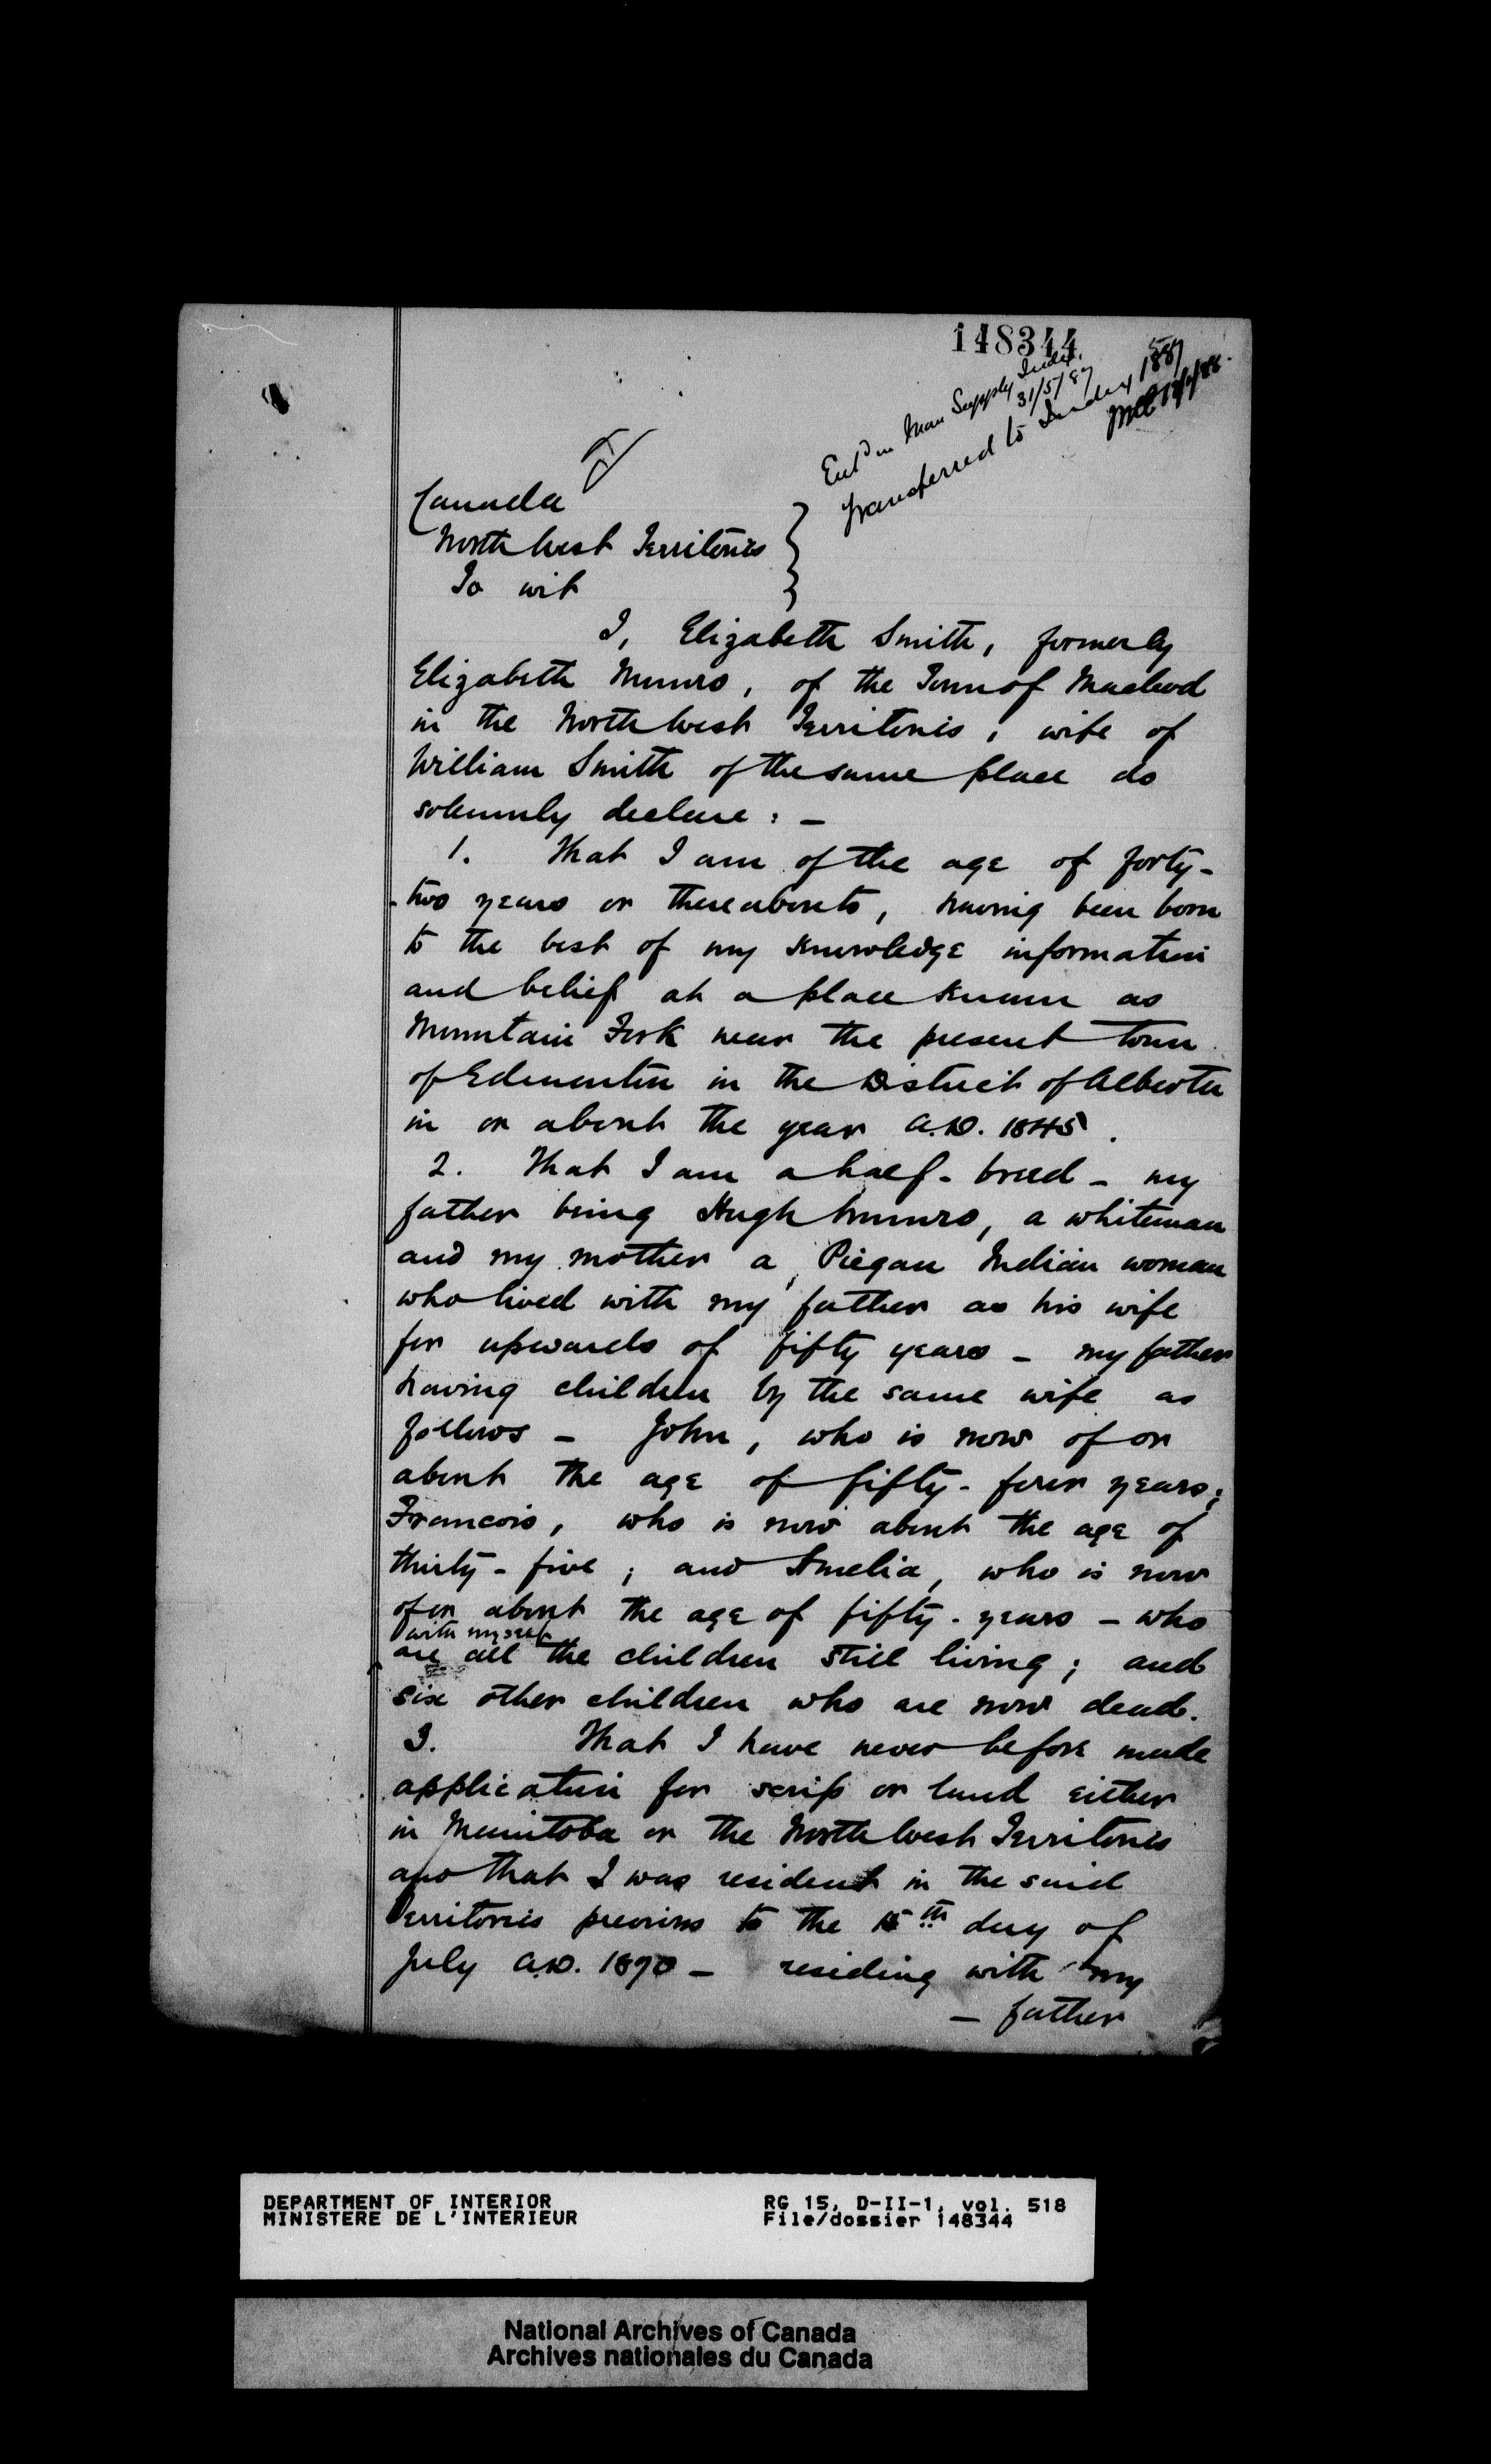 148344
Entd in Man Supply Index.
31/5/87
Transferred to Index 1887
Canada
North West Territories
To wit
I, Elizabeth Smith, formerly
Elizabeth Munro, of the Town of Macleod
in the North West Territories, wife of
William Smith of the same place do
solemnly declare: —
1. That I am of the age of forty-
two years or thereabouts, having been born
to the best of my knowledge information
and belief at a place known as
Mountain Fork near the present town
of Edmonton in the District of Alberta
in or about the year A.D. 1845.
2. That I am a half-breed — my
father being Hugh Munro, a whiteman
and my mother a Piegan Indian woman
who lived with my father as his wife
for upwards of fifty years — my father
having children by the same wife as
follows — John, who is now of or
about the age of fifty-four years;
Francois, who is now about the age of
thirty-five; and Amelia, who is now
of or about the age of fifty-years — who
with myself
are all the children still living; and
six other children who are now dead.
3. That I have never before made
application for scrip or land either
in Manitoba or the North West Territories
and that I was resident in the said
Territories previous to the 15th day of
July A.D. 1870 — residing with my
— father
DEPARTMENT OF INTERIOR
MINISTERE DE L'INTERIEUR
RG 15, D-II-1, vol. 518
File/dossier 148344
National Archives of Canada
Archives nationales du Canada